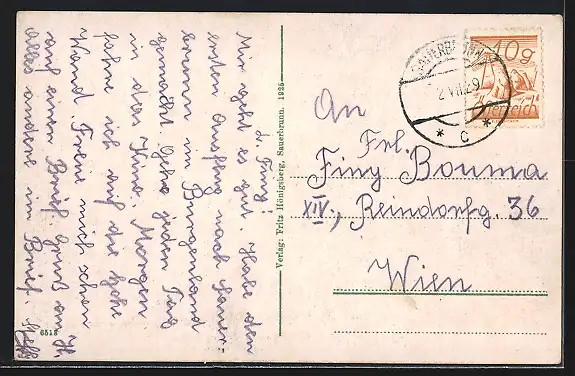 L. Finy!
Mir geht es gut. Habe den
ersten Ausflug nach Sauer-
brunn im Burgenland
gemacht. Gehe jeden Tag
in das Kino. Morgen
fahre ich auf die hohe
Wand. Freue mich schon
auf einen Brief. Gruß an H.
alles andere im Brief. Steffi
6513
Verlag: Fritz Hönigsberg, Sauerbrunn. 1925
SAUERBRUNN
2 VIII 29
* C *
10g
Österreich
An
Frl.
Finy Bouma
XIV., Reindorfg. 36
Wien